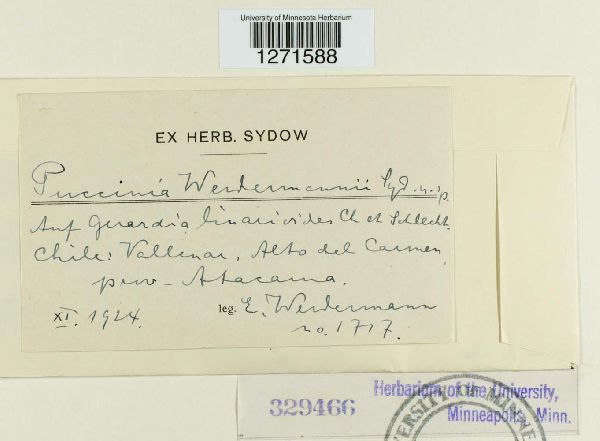 University of Minnesota Herbarium
1271588
EX HERB. SYDOW
Puccinia Werdermannii Syd. n. sp.
Auf Gerardia linarioides Ch et Schlecht.
Chile: Vallenar, Alto del Carmen,
prov - Atacama.
XI. 1924. leg. E. Werdermann
no. 1717.
329466
Herbarium of the University,
Minneapolis, Minn.
UNIVERSITY OF MINNE